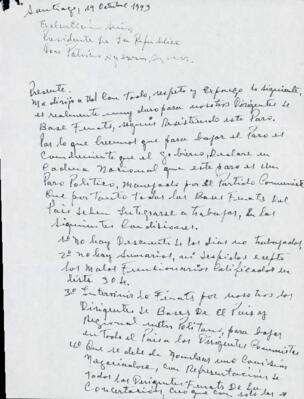 Santiago, 19 Octubre 1993
Presidente de la República
Don Patricio Aylwin
Presente.
Me dirijo a Ud con todo, respeto y Expongo lo siguiente,
es realmente muy duro para nosotros Dirigentes de
Base Fenats, seguir Resistiendo este Paro.
Por lo que creemos que para bajar el Paro es
Conveniente que el Gobierno, Declare en
Cadena Nacional que este paro es un
Paro Político, Manejado por el Partido Comunista
Que por tanto Todas las Bases Fenats del
País deben Integrarse a trabajar, en las
siguientes Condiciones.
1º No hay Descuento de los días no trabajados
2º no hay Sumarios, ni despidos
los Malos Funcionarios Calificados en
lista 3 o 4.
3º Fenats por nosotros los
Dirigentes de Bases De el País y
Regional Metropolitano, para bajar
en Todo el País a los Dirigentes Comunistas
4º Que se debe de Nombrar una Comisión
Negociadora, con Representación de
Todos los Dirigentes Fenats De la
Concertación, creo que con solo las